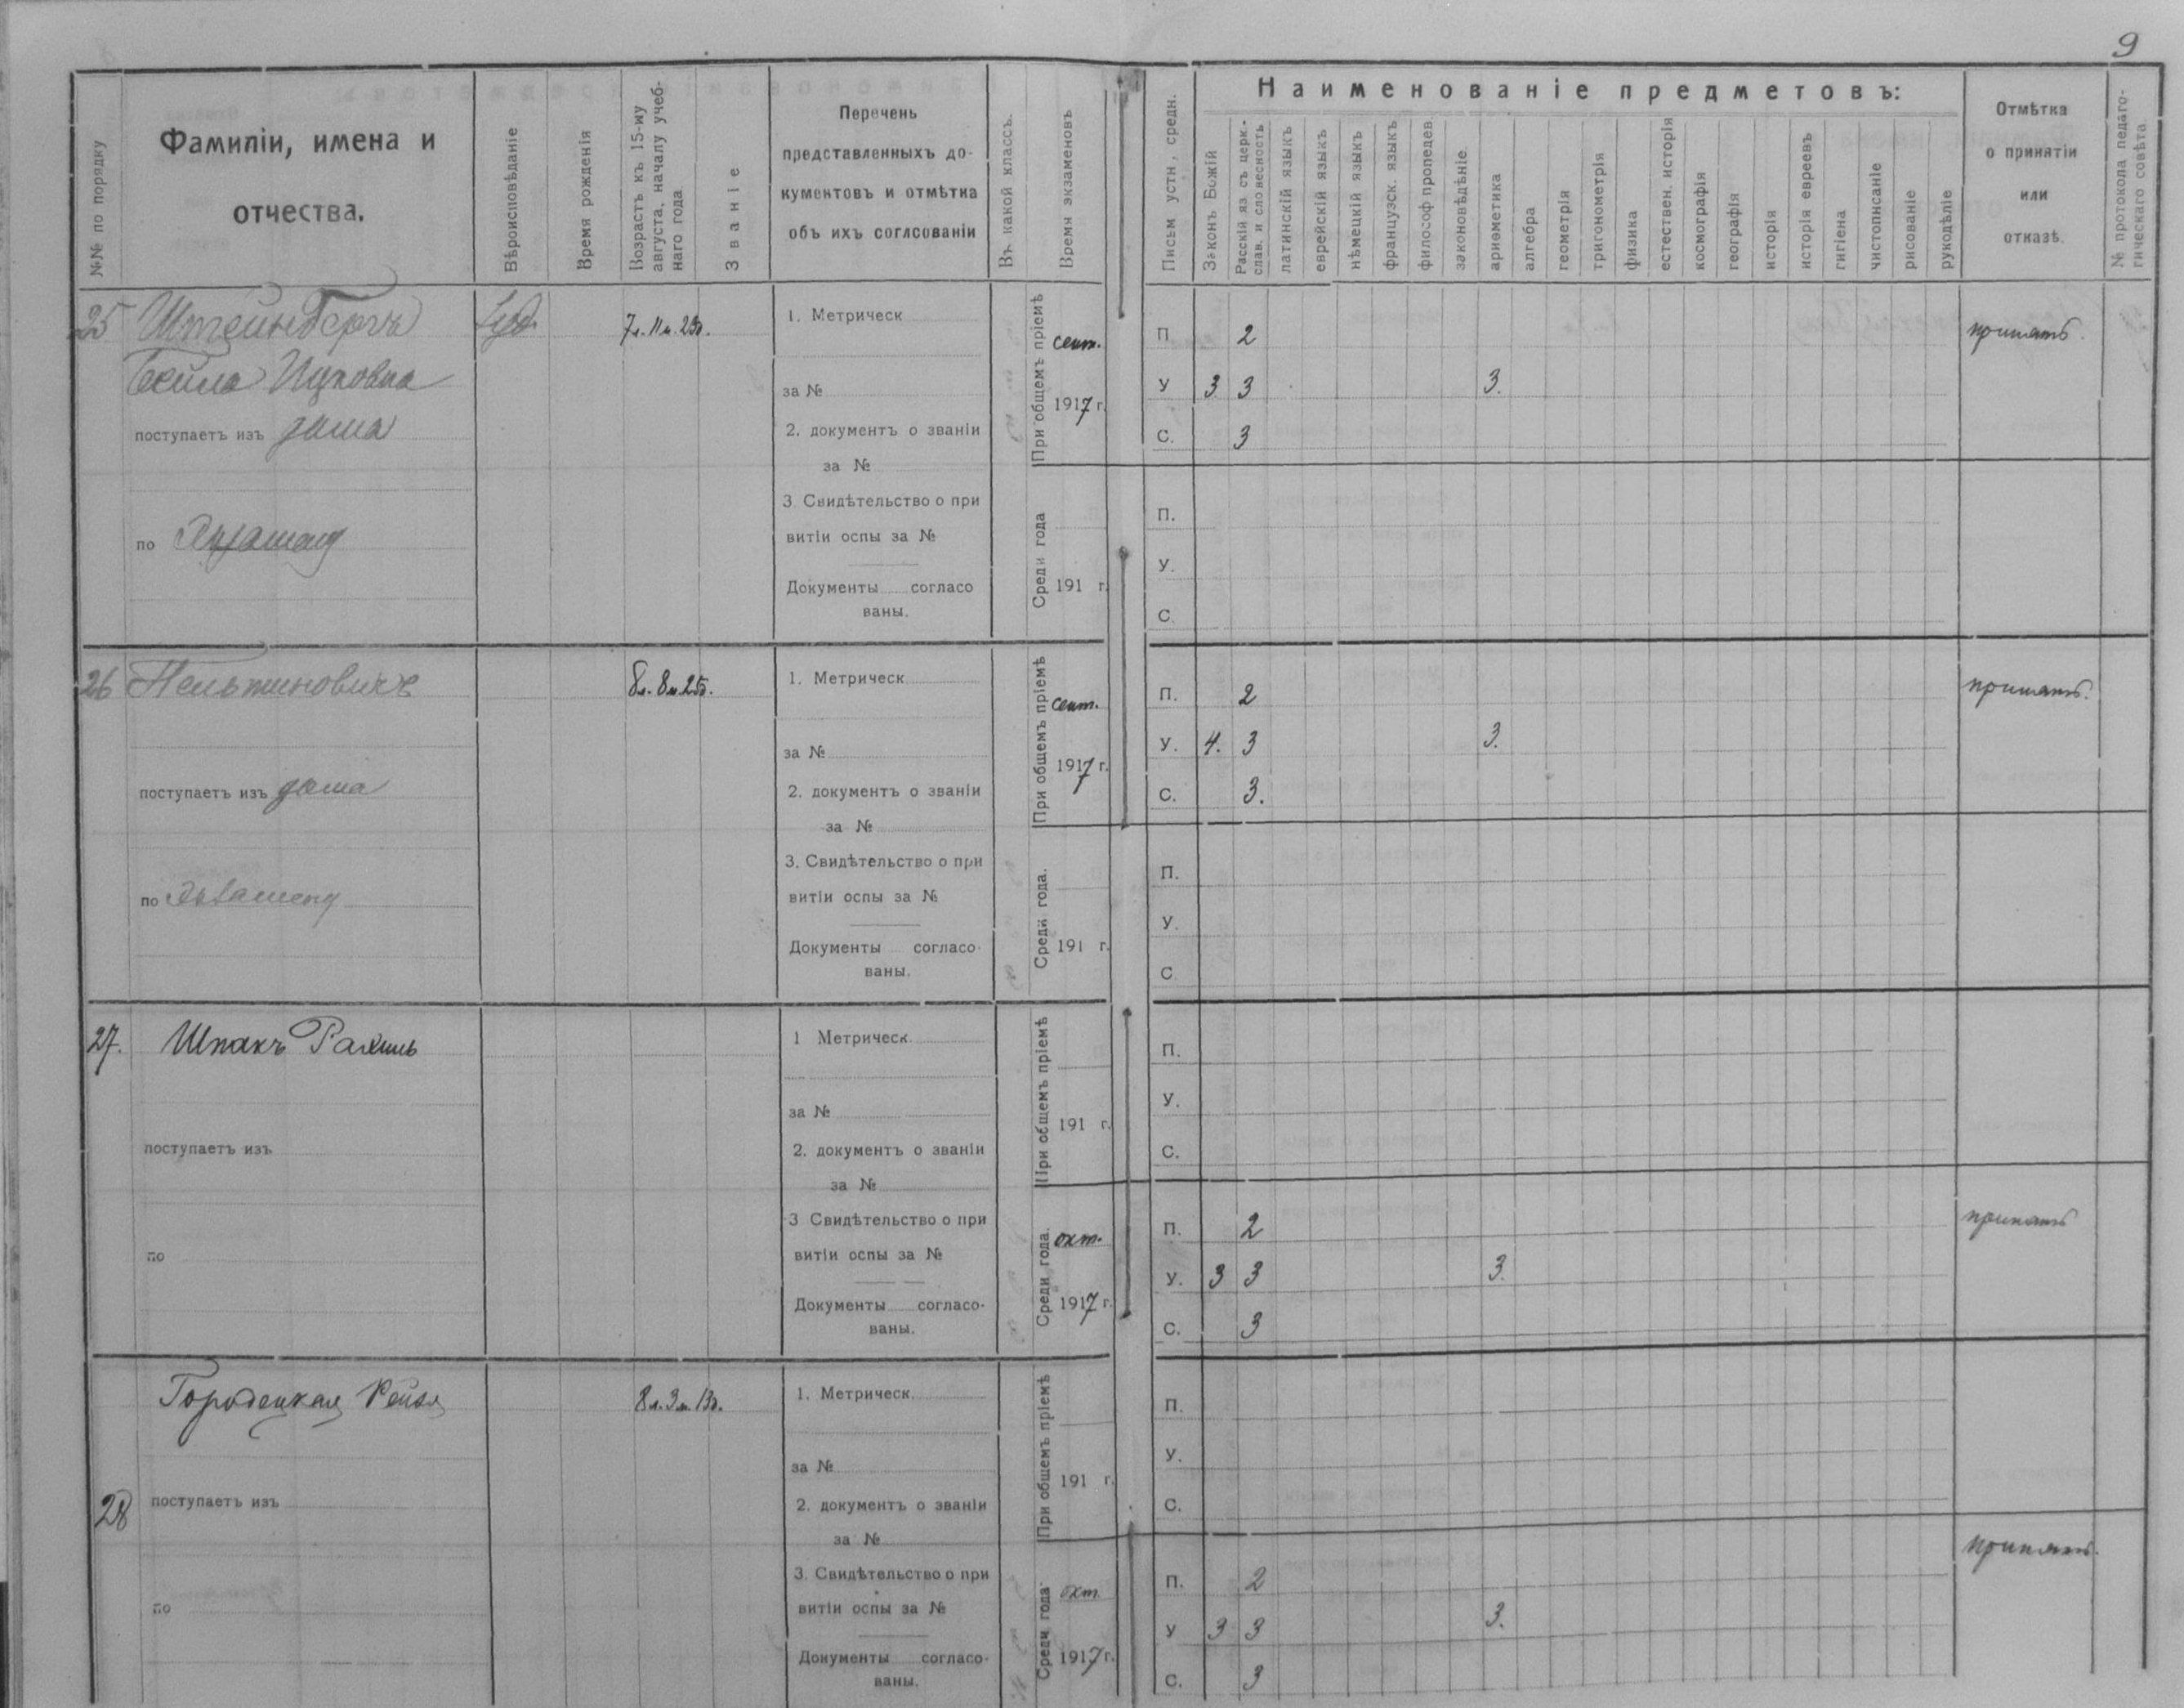 9
№№ по порядку
Фамиліи, имена и
отчества.
Вѣроисповѣданіе
Время рожденія
Возрастъ къ 15-му
августа, началу учеб-
наго года
Званіе
Перечень
представленныхъ до-
кументовъ и отмѣтка
объ ихъ соглсованіи
Въ какой классъ.
Время экзаменовъ
Письм устн, средн.
Наименованіе предметовъ:
Законъ Божій
Расскій яз съ церк.-
слав. и словесность
латинскій языкъ
еврейскій языкъ
нѣмецкій языкъ
французск. языкъ
философ пропедев
законовѣдѣніе
ариѳметика
алгебра
геометрія
тригонометрія
физика
естествен. исторія
космографія
географія
исторія
исторія евреевъ
гигіена
чистописаніе
рисованіе
рукодѣліе
Отмѣтка
о принятіи
или
отказѣ.
№ протокола педаго-
гическаго совѣта
25 Штейнбергъ
Бейла Ицковна
поступаетъ изъ дома
по
Іуд.
7л. 11м. 23д.
1. Метрическ
за №
2. документъ о званіи
за №
3. Свидѣтельство о при
витіи оспы за №
Документы согласо
ваны.
При общемъ пріемѣ
сент.
1917 г.
П 2
У 3 3 3.
С. 3
принять.
Среди года
191 г.
П.
У.
С.
26
поступаетъ изъ дома
по
8л. 8м. 25д.
1. Метрическ
за №
2. документъ о званіи
за №
3. Свидѣтельство о при
витіи оспы за №
Документы согласо-
ваны.
При общемъ пріемѣ
сент.
1917 г.
П. 2
У. 4. 3 3.
С. 3.
принять.
Среди года.
191 г.
П.
У.
С
27. Шпакъ Рахиль
поступаетъ изъ
по
1 Метрическ.
за №
2. документъ о званіи
за №
3 Свидѣтельство о при
витіи оспы за №
Документы согласо-
ваны.
При общемъ пріемѣ
191 г.
П.
У.
С.
Среди года.
окт.
1917 г.
П. 2
У. 3 3 3.
С. 3
принять
28 Городецкая Рейзя
поступаетъ изъ
по
8л. 3м. 13д.
1. Метрическ.
за №
2. документъ о званіи
за №
3. Свидѣтельство о при
витіи оспы за №
Документы согласо-
ваны.
При общемъ пріемѣ
191 г.
П.
У.
С.
Среди года
окт
1917 г.
П. 2
У 3 3 3.
С. 3
принять.